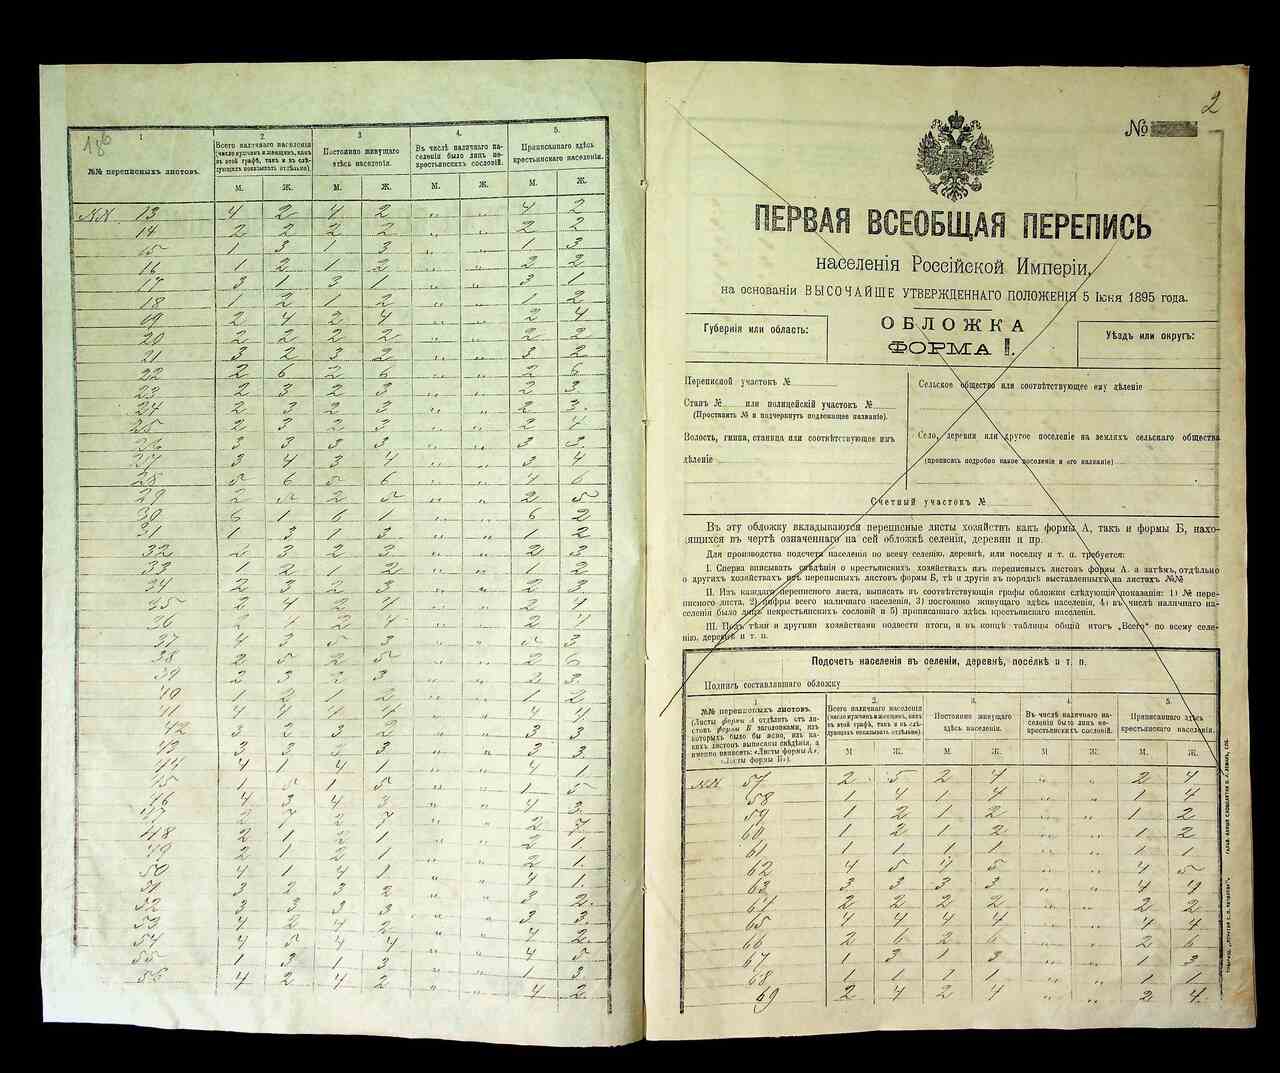 186
1
2.
3
4.
5.
№№ переписныхъ листовъ.
Всего наличнаго населенія (число мужчинъ и женщинъ, какъ въ этой графѣ, такъ и въ слѣдующихъ показывать отдѣльно).
Постоянно живущаго здѣсь населенія.
Въ числѣ наличнаго населенія было лицъ некрестьянскихъ сословій.
Приписаннаго здѣсь крестьянскаго населенія.
М. Ж. М. Ж. М. Ж. М. Ж.
NN 13 4 2 4 2 „ „ 4 2
14 2 2 2 2 „ „ 2 2
15 1 3 1 3 „ „ 1 3
16 1 2 1 2 „ „ 2 2
17 3 1 3 1 „ „ 3 1
18 1 2 1 2 „ „ 1 2
19 2 4 2 4 „ „ 2 4
20 2 2 2 2 „ „ 2 2
21 3 2 3 2 „ „ 3 2
22 2 6 2 6 „ „ 2 6
23 2 3 2 3 „ „ 2 3.
24 2 3 2 3 „ „ 2 3.
25 2 3 2 3 „ „ 2 4
26 3 3 3 3 „ „ 3 3.
27 3 4 3 4 „ „ 3 4
28 5 6 5 6 „ „ 4 6
29 2 5 2 5 „ „ 2 5
30 6 1 6 1 „ „ 6 2
31 1 3 1 3. „ „ 1 2
32 2 3 2 3 „ „ 2 3
33 1 2 1 2 „ „ 1 2
34 2 3 2 3 „ „ 2 3.
35 2 4 2 4 „ „ 2 4
36 2 1 2 4 „ „ 2 4
37 4 3 5 3 „ „ 5 3
38 2 5 2 5 „ „ 2 6
39 2 3 2 3 „ „ 2 3.
40 1 2 1 2 „ „ 1 2.
41 4 4 4 4 „ „ 4 4.
42 3 2 3 2 „ „ 3 3
43 3 3 2 3 „ „ 3 3.
44 4 1 4 1 „ „ 4 1
45 1 5 1 5 „ „ 1 5
46 4 3 4 3 „ „ 4 3.
47 2 7 2 7 „ „ 2 7.
48 2 1 2 1 „ „ 2 1
49 2 1 2 1 „ „ 2 1.
50 4 1 4 1 „ „ 4 1.
51 3 2 3 2 „ „ 3 2.
52 3 3 3 3 „ „ 3 3.
53 4 2 4 2 „ „ 4 2.
54 4 5 4 4 „ „ 4 5
55 1 3 1 3 „ „ 1 3.
56 4 2 4 2 „ „ 4 2.
2
№
ПЕРВАЯ ВСЕОБЩАЯ ПЕРЕПИСЬ
населенія Россійской Имперіи,
на основаніи ВЫСОЧАЙШЕ УТВЕРЖДЕННАГО ПОЛОЖЕНІЯ 5 Іюня 1895 года.
Губернія или область:
ОБЛОЖКА
ФОРМА I.
Уѣздъ или округъ:
Переписной участокъ №
Станъ № или полицейскій участокъ №
(Проставить № и подчеркнуть подлежащее названіе).
Волость, гмина, станица или соотвѣтствующее имъ
дѣленіе
Сельское общество или соотвѣтствующее ему дѣленіе
Село, деревня или другое поселеніе на земляхъ сельскаго общества
(прописать подробно какое поселеніе и его названіе)
Счетный участокъ №
Въ эту обложку вкладываются переписные листы хозяйствъ какъ формы А, такъ и формы Б, нахо-
дящихся въ чертѣ означеннаго на сей обложкѣ селенія, деревни и пр.
Для производства подсчета населенія по всему селенію, деревнѣ, или поселку и т. п. требуется:
I. Сперва вписывать свѣдѣнія о крестьянскихъ хозяйствахъ изъ переписныхъ листовъ формы А. а затѣмъ, отдѣльно
о другихъ хозяйствахъ изъ переписныхъ листовъ формы Б, тѣ и другіе въ порядкѣ выставленныхъ на листахъ №№
II. Изъ каждаго переписного листа, выписать въ соотвѣтствующія графы обложки слѣдующія показанія: 1) № пере-
писного листа, 2) цифры всего наличнаго населенія, 3) постоянно живущаго здѣсь населенія, 4) въ числѣ наличнаго на-
селенія было лицъ некрестьянскихъ сословій и 5) приписаннаго здѣсь крестьянскаго населенія.
III. Подъ тѣми и другими хозяйствами подвести итоги, и въ концѣ таблицы общій итогъ „Всего" по всему селе-
нію, деревнѣ и т. п.
Подсчетъ населенія въ селеніи, деревнѣ, поселкѣ и т. п.
Подпись составлявшаго обложку
1.
2.
3.
4.
5.
№№ переписныхъ листовъ.
(Листы формы А отдѣлить отъ листовъ формы Б заголовками, изъ которыхъ было бы ясно, изъ какихъ листовъ выписаны свѣдѣнія, а именно написать: «Листы формы А», «Листы формы Б»).
Всего наличнаго населенія (число мужчинъ и женщинъ, какъ въ этой графѣ, такъ и въ слѣдующихъ показывать отдѣльно).
Постоянно живущаго здѣсь населенія.
Въ числѣ наличнаго населенія было лицъ некрестьянскихъ сословій.
Приписаннаго здѣсь крестьянскаго населенія.
М Ж. М Ж. М Ж. М Ж.
NN 57 2 5 2 4 „ „ 2 4
58 1 4 1 4 „ „ 1 4
59 1 2 1 2 „ „ 1 2
60 1 2 1 2 „ „ 1 2
61 1 1 1 1 „ „ 1 1
62 4 5 4 5 „ „ 4 5
63 3 3 3 3 „ „ 4 4
64 2 2 2 2 „ „ 2 2
65 4 4 4 4 „ „ 4 4
66 2 6 2 6 „ „ 2 6
67 1 3 1 3 „ „ 1 3
68 1 1 1 1 „ „ 1 1
69 2 4 2 4 „ „ 2 4.